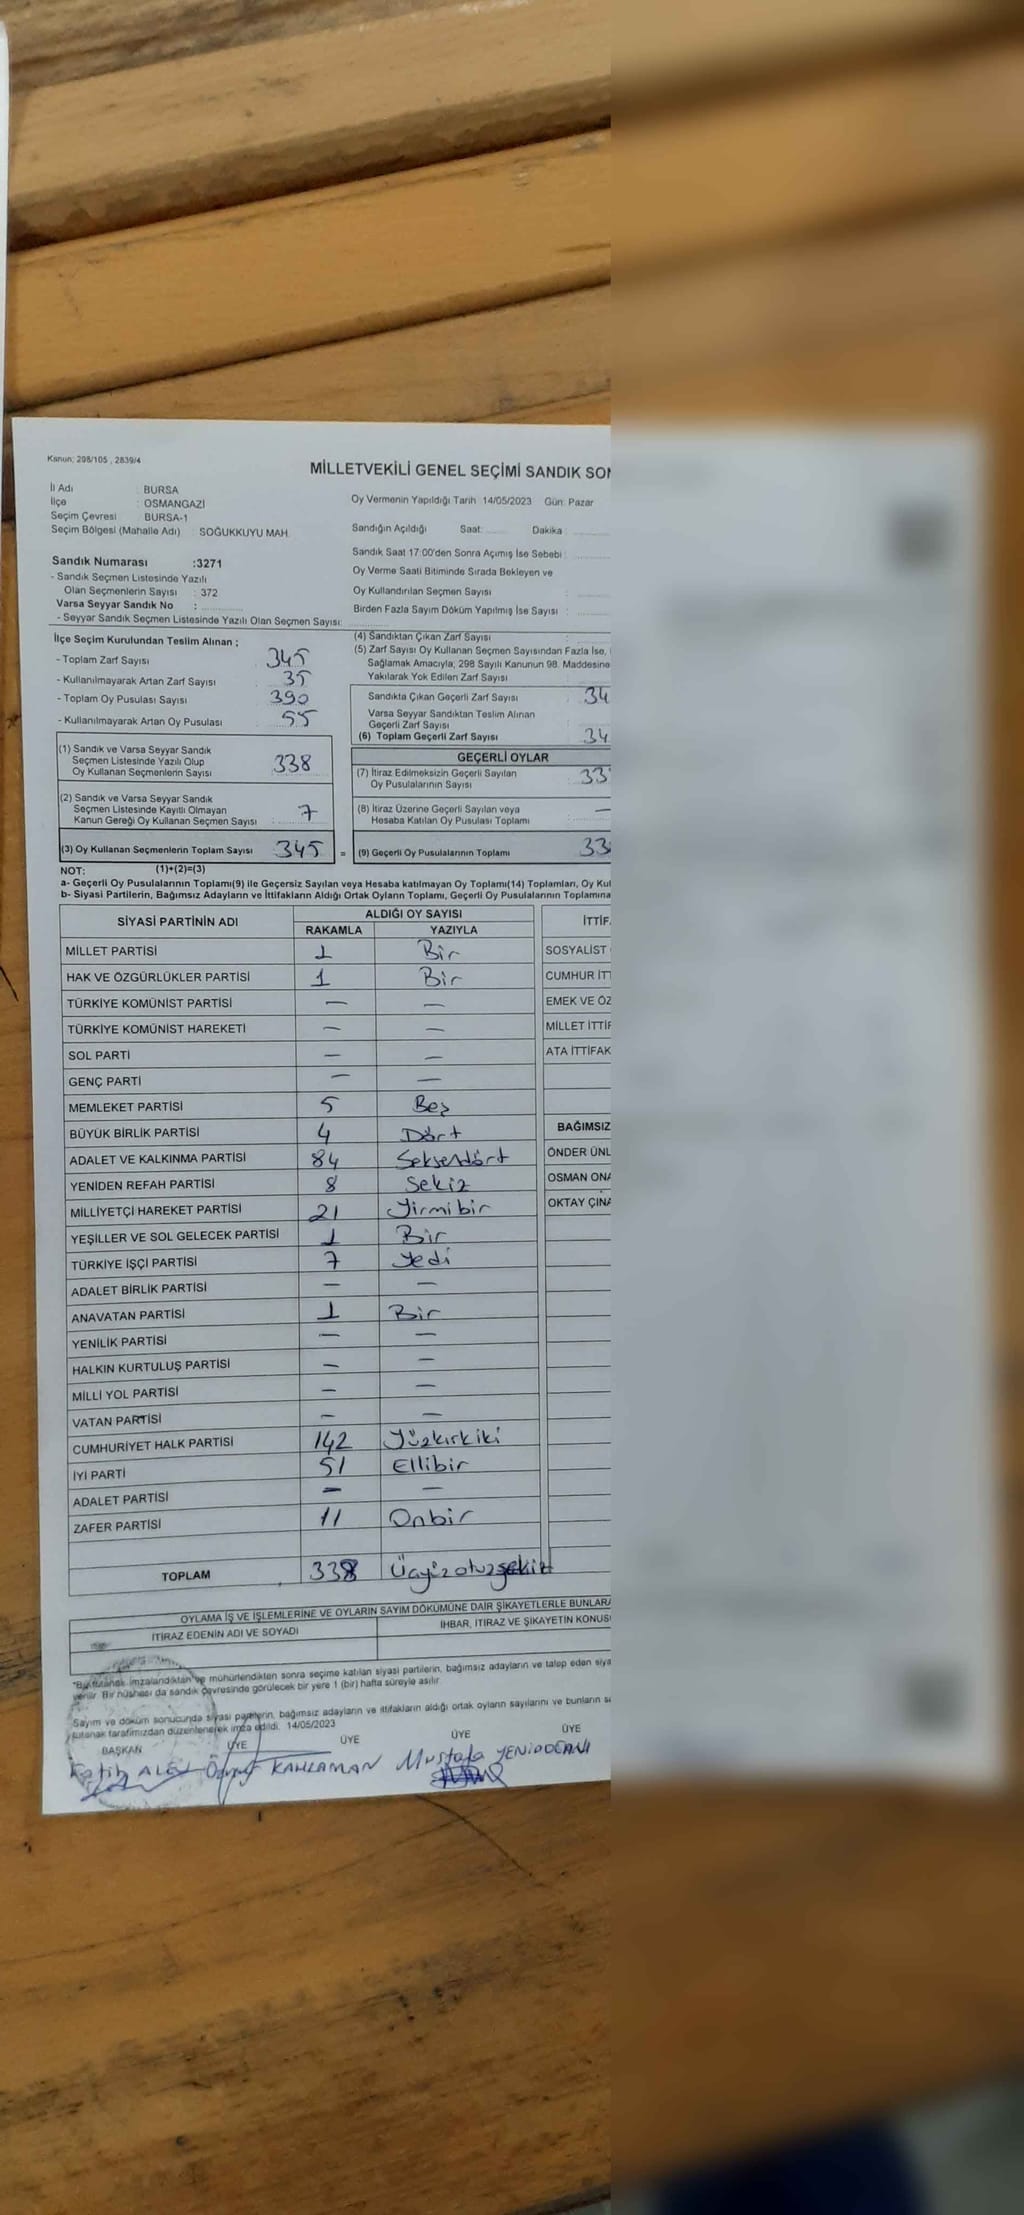 Kanun; 298/105 , 2839/4
MİLLETVEKİLİ GENEL SEÇİMİ SANDIK SON
İl Adı : BURSA
İlçe : OSMANGAZİ
Seçim Çevresi : BURSA-1
Seçim Bölgesi (Mahalle Adı) : SOĞUKKUYU MAH.
Oy Vermenin Yapıldığı Tarih 14/05/2023 Gün: Pazar
Sandığın Açıldığı Saat: Dakika :
Sandık Saat 17:00'den Sonra Açımış İse Sebebi :
Oy Verme Saati Bitiminde Sırada Bekleyen ve
Oy Kullandırılan Seçmen Sayısı :
Birden Fazla Sayım Döküm Yapılmış İse Sayısı :
Sandık Numarası :3271
- Sandık Seçmen Listesinde Yazılı
Olan Seçmenlerin Sayısı : 372
Varsa Seyyar Sandık No :
- Seyyar Sandık Seçmen Listesinde Yazılı Olan Seçmen Sayısı:
İlçe Seçim Kurulundan Teslim Alınan ;
- Toplam Zarf Sayısı 345
- Kullanılmayarak Artan Zarf Sayısı : 35
- Toplam Oy Pusulası Sayısı 390
- Kullanılmayarak Artan Oy Pusulası 55
(4) Sandıktan Çıkan Zarf Sayısı :
(5) Zarf Sayısı Oy Kullanan Seçmen Sayısından Fazla İse,
Sağlamak Amacıyla; 298 Sayılı Kanunun 98. Maddesine
Yakılarak Yok Edilen Zarf Sayısı
Sandıkta Çıkan Geçerli Zarf Sayısı : 34
Varsa Seyyar Sandıktan Teslim Alınan
Geçerli Zarf Sayısı
(6) Toplam Geçerli Zarf Sayısı : 34
(1) Sandık ve Varsa Seyyar Sandık
Seçmen Listesinde Yazılı Olup
Oy Kullanan Seçmenlerin Sayısı 338
(2) Sandık ve Varsa Seyyar Sandık
Seçmen Listesinde Kayıtlı Olmayan
Kanun Gereği Oy Kullanan Seçmen Sayısı : 7
(3) Oy Kullanan Seçmenlerin Toplam Sayısı 345 =
GEÇERLİ OYLAR
(7) İtiraz Edilmeksizin Geçerli Sayılan
Oy Pusulalarının Sayısı : 33
(8) İtiraz Üzerine Geçerli Sayılan veya
Hesaba Katılan Oy Pusulası Toplamı : —
(9) Geçerli Oy Pusulalarının Toplamı 33
NOT: (1)+(2)=(3)
a- Geçerli Oy Pusulalarının Toplamı(9) ile Geçersiz Sayılan veya Hesaba katılmayan Oy Toplamı(14) Toplamları, Oy Kul
b- Siyasi Partilerin, Bağımsız Adayların ve İttifakların Aldığı Ortak Oyların Toplamı, Geçerli Oy Pusulalarının Toplamına
SİYASİ PARTİNİN ADI ALDIĞI OY SAYISI
RAKAMLA YAZIYLA
MİLLET PARTİSİ 1 Bir
HAK VE ÖZGÜRLÜKLER PARTİSİ 1 Bir
TÜRKİYE KOMÜNİST PARTİSİ — —
TÜRKİYE KOMÜNİST HAREKETİ — —
SOL PARTİ — —
GENÇ PARTİ — —
MEMLEKET PARTİSİ 5 Beş
BÜYÜK BİRLİK PARTİSİ 4 Dört
ADALET VE KALKINMA PARTİSİ 84 Seksendört
YENİDEN REFAH PARTİSİ 8 Sekiz
MİLLİYETÇİ HAREKET PARTİSİ 21 Yirmibir
YEŞİLLER VE SOL GELECEK PARTİSİ 1 Bir
TÜRKİYE İŞÇİ PARTİSİ 7 Yedi
ADALET BİRLİK PARTİSİ — —
ANAVATAN PARTİSİ 1 Bir
YENİLİK PARTİSİ — —
HALKIN KURTULUŞ PARTİSİ — —
MİLLİ YOL PARTİSİ — —
VATAN PARTİSİ — —
CUMHURİYET HALK PARTİSİ 142 Yüzkırkiki
İYİ PARTİ 51 Ellibir
ADALET PARTİSİ — —
ZAFER PARTİSİ 11 Onbir
TOPLAM 338 Üçyüzotuzsekiz
İTTİF
SOSYALİST
CUMHUR İTT
EMEK VE ÖZ
MİLLET İTTİF
ATA İTTİFAK
BAĞIMSIZ
ÖNDER ÜNL
OSMAN ONA
OKTAY ÇINA
OYLAMA İŞ VE İŞLEMLERİNE VE OYLARIN SAYIM DÖKÜMÜNE DAİR ŞİKAYETLERLE BUNLARA
İTİRAZ EDENİN ADI VE SOYADI İHBAR, İTİRAZ VE ŞİKAYETİN KONUS
*Bu tutanak imzalandıktan ve mühürlendikten sonra seçime katılan siyasi partilerin, bağımsız adayların ve talep eden siya
verilir. Bir nüshası da sandık çevresinde görülecek bir yere 1 (bir) hafta süreyle asılır.
Sayım ve döküm sonucunda siyasi partilerin, bağımsız adayların ve ittifakların aldığı ortak oyların sayılarını ve bunların
tutanak tarafımızdan düzenlenerek imza edildi. 14/05/2023
BAŞKAN ÜYE ÜYE ÜYE ÜYE
Fatih KAHRAMAN Mustafa